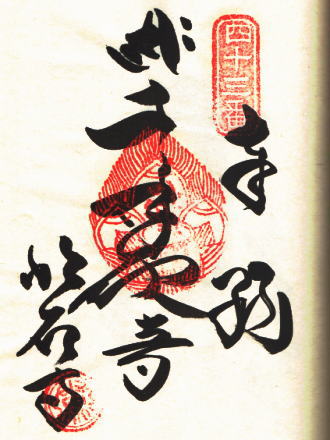 四十三番
奉納
千手観音
明石寺